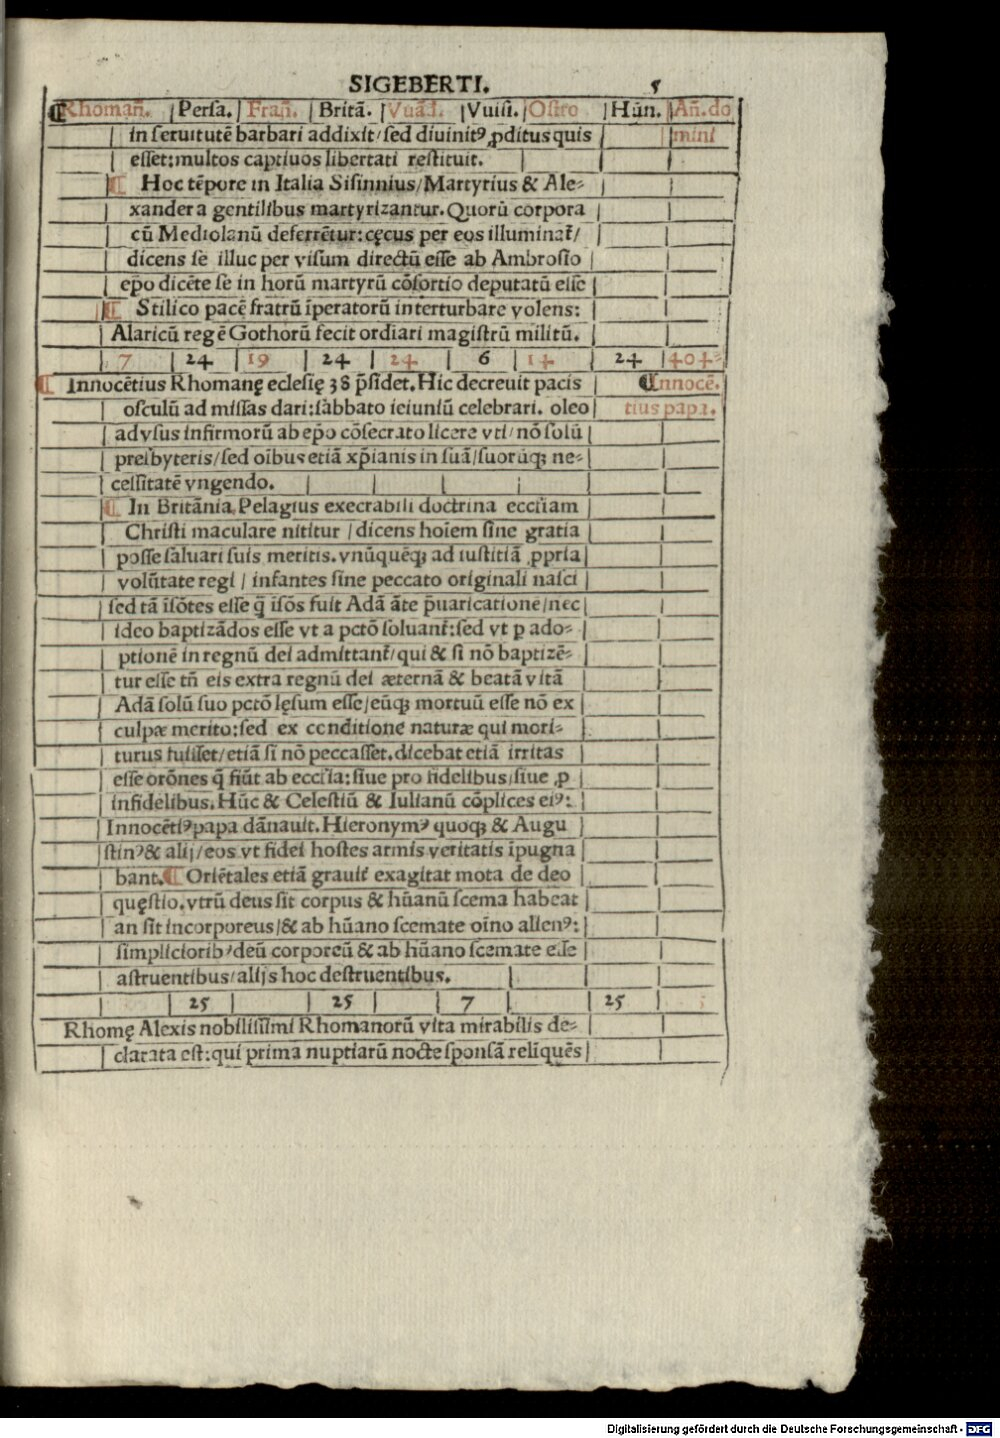 SIGEBERTI. 5
¶Rhomañ. Persa. Frañ. Britã. Vuãd. Vuisi. Ostro Hũn. Añ.do
in seruitutẽ barbari addixit/sed diuinitꝰ ꝓditus quis mini
esset:multos captiuos libertati restituit.
¶ Hoc tẽpore in Italia Sisinnius/Martyrius & Ale-
xander a gentilibus martyrizantur.Quorũ corpora
cũ Mediolanũ deferrẽtur:cęcus per eos illuminat̃/
dicens se illuc per visum directũ esse ab Ambrosio
ep̃o dicẽte se in horũ martyrũ cõsortio deputatũ esse
¶ Stilico pacẽ fratrũ ĩperatorũ interturbare volens:
Alaricũ regẽ Gothorũ fecit ordiari magistrũ militũ.
7 24 19 24 24 6 14 24 404-
¶ Innocẽtius Rhomanę eclesię 38 p̃sidet.Hic decreuit pacis ¶Innocẽ-
osculũ ad missas dari:sabbato ieiuniũ celebrari. oleo tius papa.
ad vsus infirmorũ ab ep̃o cõsecrato licere vti/nõ solũ
presbyteris/sed oĩbus etiã xp̃ianis in suã/suorũqꝫ ne-
cessitatẽ vngendo.
¶ In Britãnia Pelagius execrabili doctrina ecc̃iam
Christi maculare nititur /dicens hoĩem sine gratia
posse saluari suis meritis.vnũquẽqꝫ ad iustitiã ꝓpria
volũtate regi / infantes sine peccato originali nasci
sed tã ĩsõtes esse q̃ ĩsõs fuit Adã ãte p̃uaricationẽ/nec
ideo baptizãdos esse vt a pctõ soluant̃:sed vt p ado-
ptionẽ in regnũ dei admittant̃/qui & si nõ baptizẽ-
tur esse tñ eis extra regnũ dei æternã & beatã vitã
Adã solũ suo pctõ lęsum esse/eũqꝫ mortuũ esse nõ ex
culpæ merito:sed ex conditione naturæ qui mori-
turus fuisset/etiã si nõ peccasset.dicebat etiã irritas
esse orõnes q̃ fiũt ab eccl̃ia:siue pro fidelibus/siue ꝓ
infidelibus.Hũc & Celestiũ & Iulianũ cõplices eiꝰ:
Innocẽtiꝰpapa dãnauit.Hieronymꝰ quoqꝫ & Augu
stinꝰ& alij/eos vt fidei hostes armis veritatis ĩpugna
bant.¶ Oriẽtales etiã grauit̃ exagitat mota de deo
quęstio.vtrũ deus sit corpus & hũanũ scema habeat
an sit incorporeus/& ab hũano scemate oĩno alienꝰ:
simpliciorib'deũ corporeũ & ab hũano scemate esse
astruentibus/alijs hoc destruentibus.
25 25 7 25
Rhomę Alexis nobilissimi Rhomanorũ vita mirabilis de-
clarata est:qui prima nuptiarũ nocte sponsã relĩquẽs
Digitalisierung gefördert durch die Deutsche Forschungsgemeinschaft - DFG